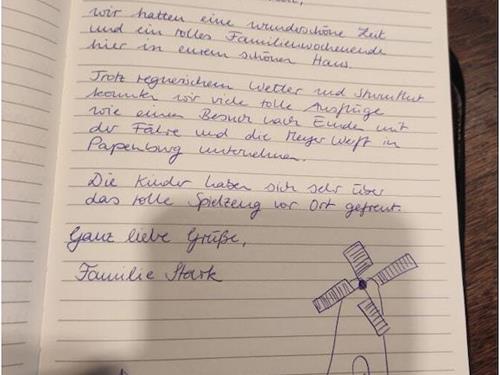 wir hatten eine wunderschöne Zeit
und ein tolles Familienwochenende
hier in eurem schönen Haus.
Trotz regnerischem Wetter und Sturmflut
konnten wir viele tolle Ausflüge
wie einen Besuch nach Emden mit
der Fähre und die Meyer Werft in
Papenburg unternehmen.
Die Kinder haben sich sehr über
das tolle Spielzeug vor Ort gefreut.
Ganz liebe Grüße,
Familie Stark